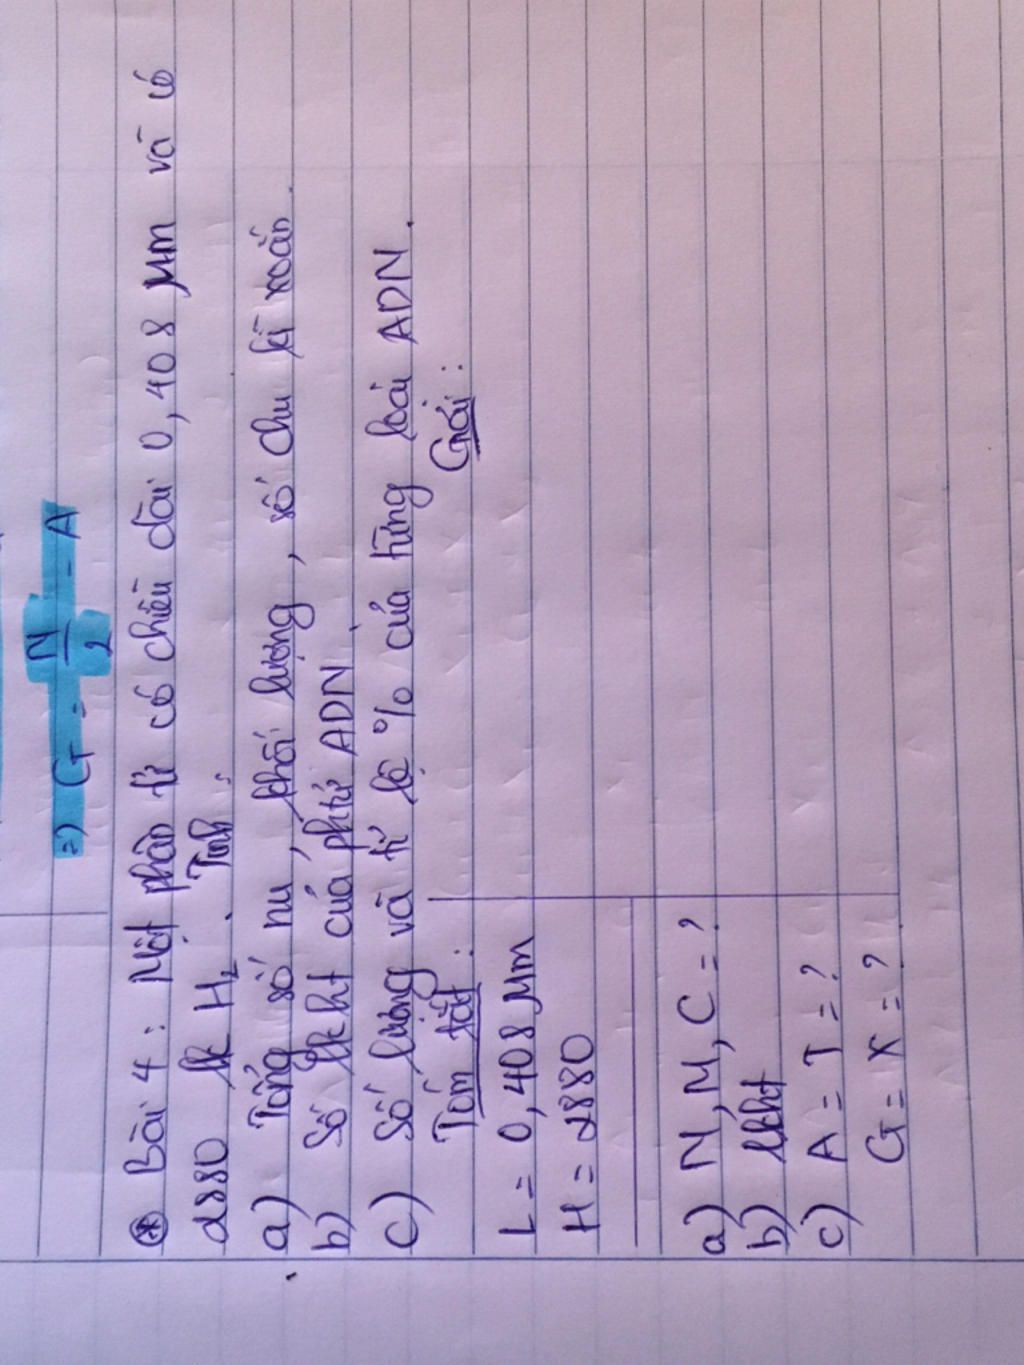 =) G = N/2 - A
* Bài 4 : Một phân tử có chiều dài 0,408 µm và có
2880 lk H2 . Tính :
a) Tổng số nu, khối lượng, số chu kì xoắn.
b) Số lkht của ph tử ADN.
c) Số lượng và tỉ lệ % của từng loài ADN.
Tóm tắt : Giải :
L = 0,408 µm
H = 2880
a) N, M, C = ?
b) lkht
c) A = T = ?
G = X = ?